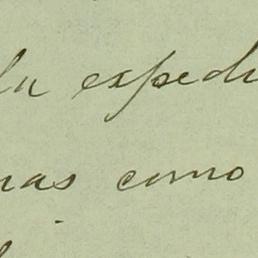 la expedi
nas como